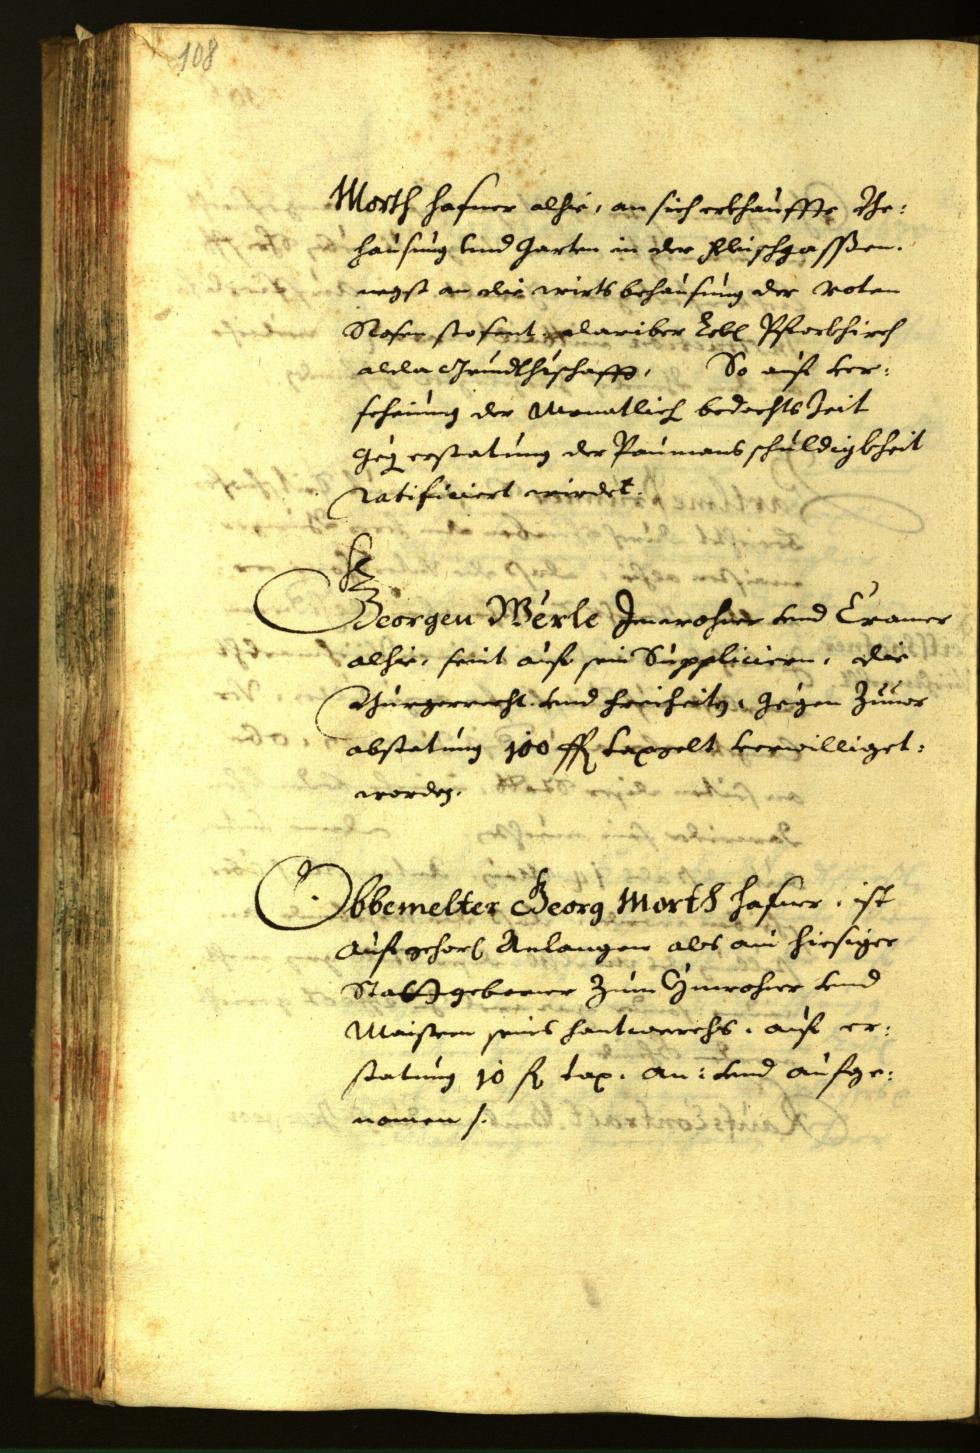 108
Morth hafner alhie, an sich erkhauffte Be:
hausung und Garten in der Fleischgassen.
negst an die wirts behausung der Roten
Rosen stosent, dariber Lobl Pfarkhirch
alda Grundthschafft, So auf ver:
scheinung der Monatlich bedachts Zeit
gegen erstatung der Paumans schuldigkheit
ratificiert wirdet.
Georgen Wërle Inwohner und Cramer
alhie, seint auf sein Suppliciern, die
Burgerrecht und freiheiten, gegen Zuuor
abstatung 100 fl taxgelt verwilliget:
worden.
Obbemelter Georg Morth hafner, ist
auf gehors Anlangen als ain hiesiger
Statt geborner Zum Ynwohner und
Maistern seines hantwerchs, auf er:
statung 10 fl tax. an: und aufge:
nomen /.